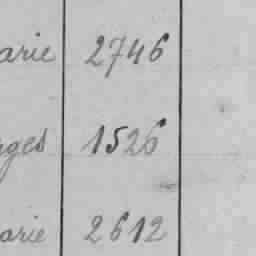 arie 2746
rges 1526
arie 2612